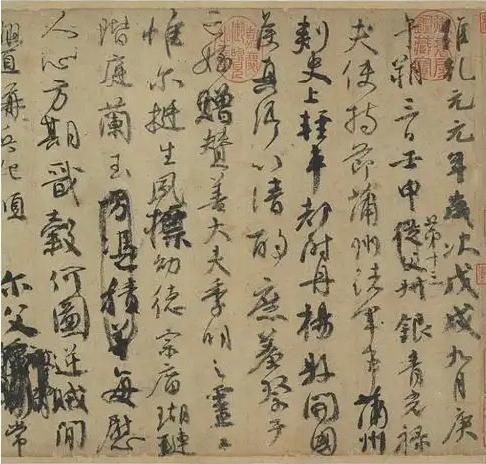 維乾元元年歲次戊戌九月庚
午朔三日壬申第十三從父銀青光祿
夫使持節蒲州諸軍事蒲州
刺史上輕車都尉丹楊縣開國
侯真卿以清酌庶羞祭于
亡姪贈贊善大夫季明之靈曰
惟爾挺生夙標幼德宗廟瑚璉
階庭蘭玉方憑積善每慰
人心方期戩穀何圖逆賊閒
釁稱兵犯順爾父常